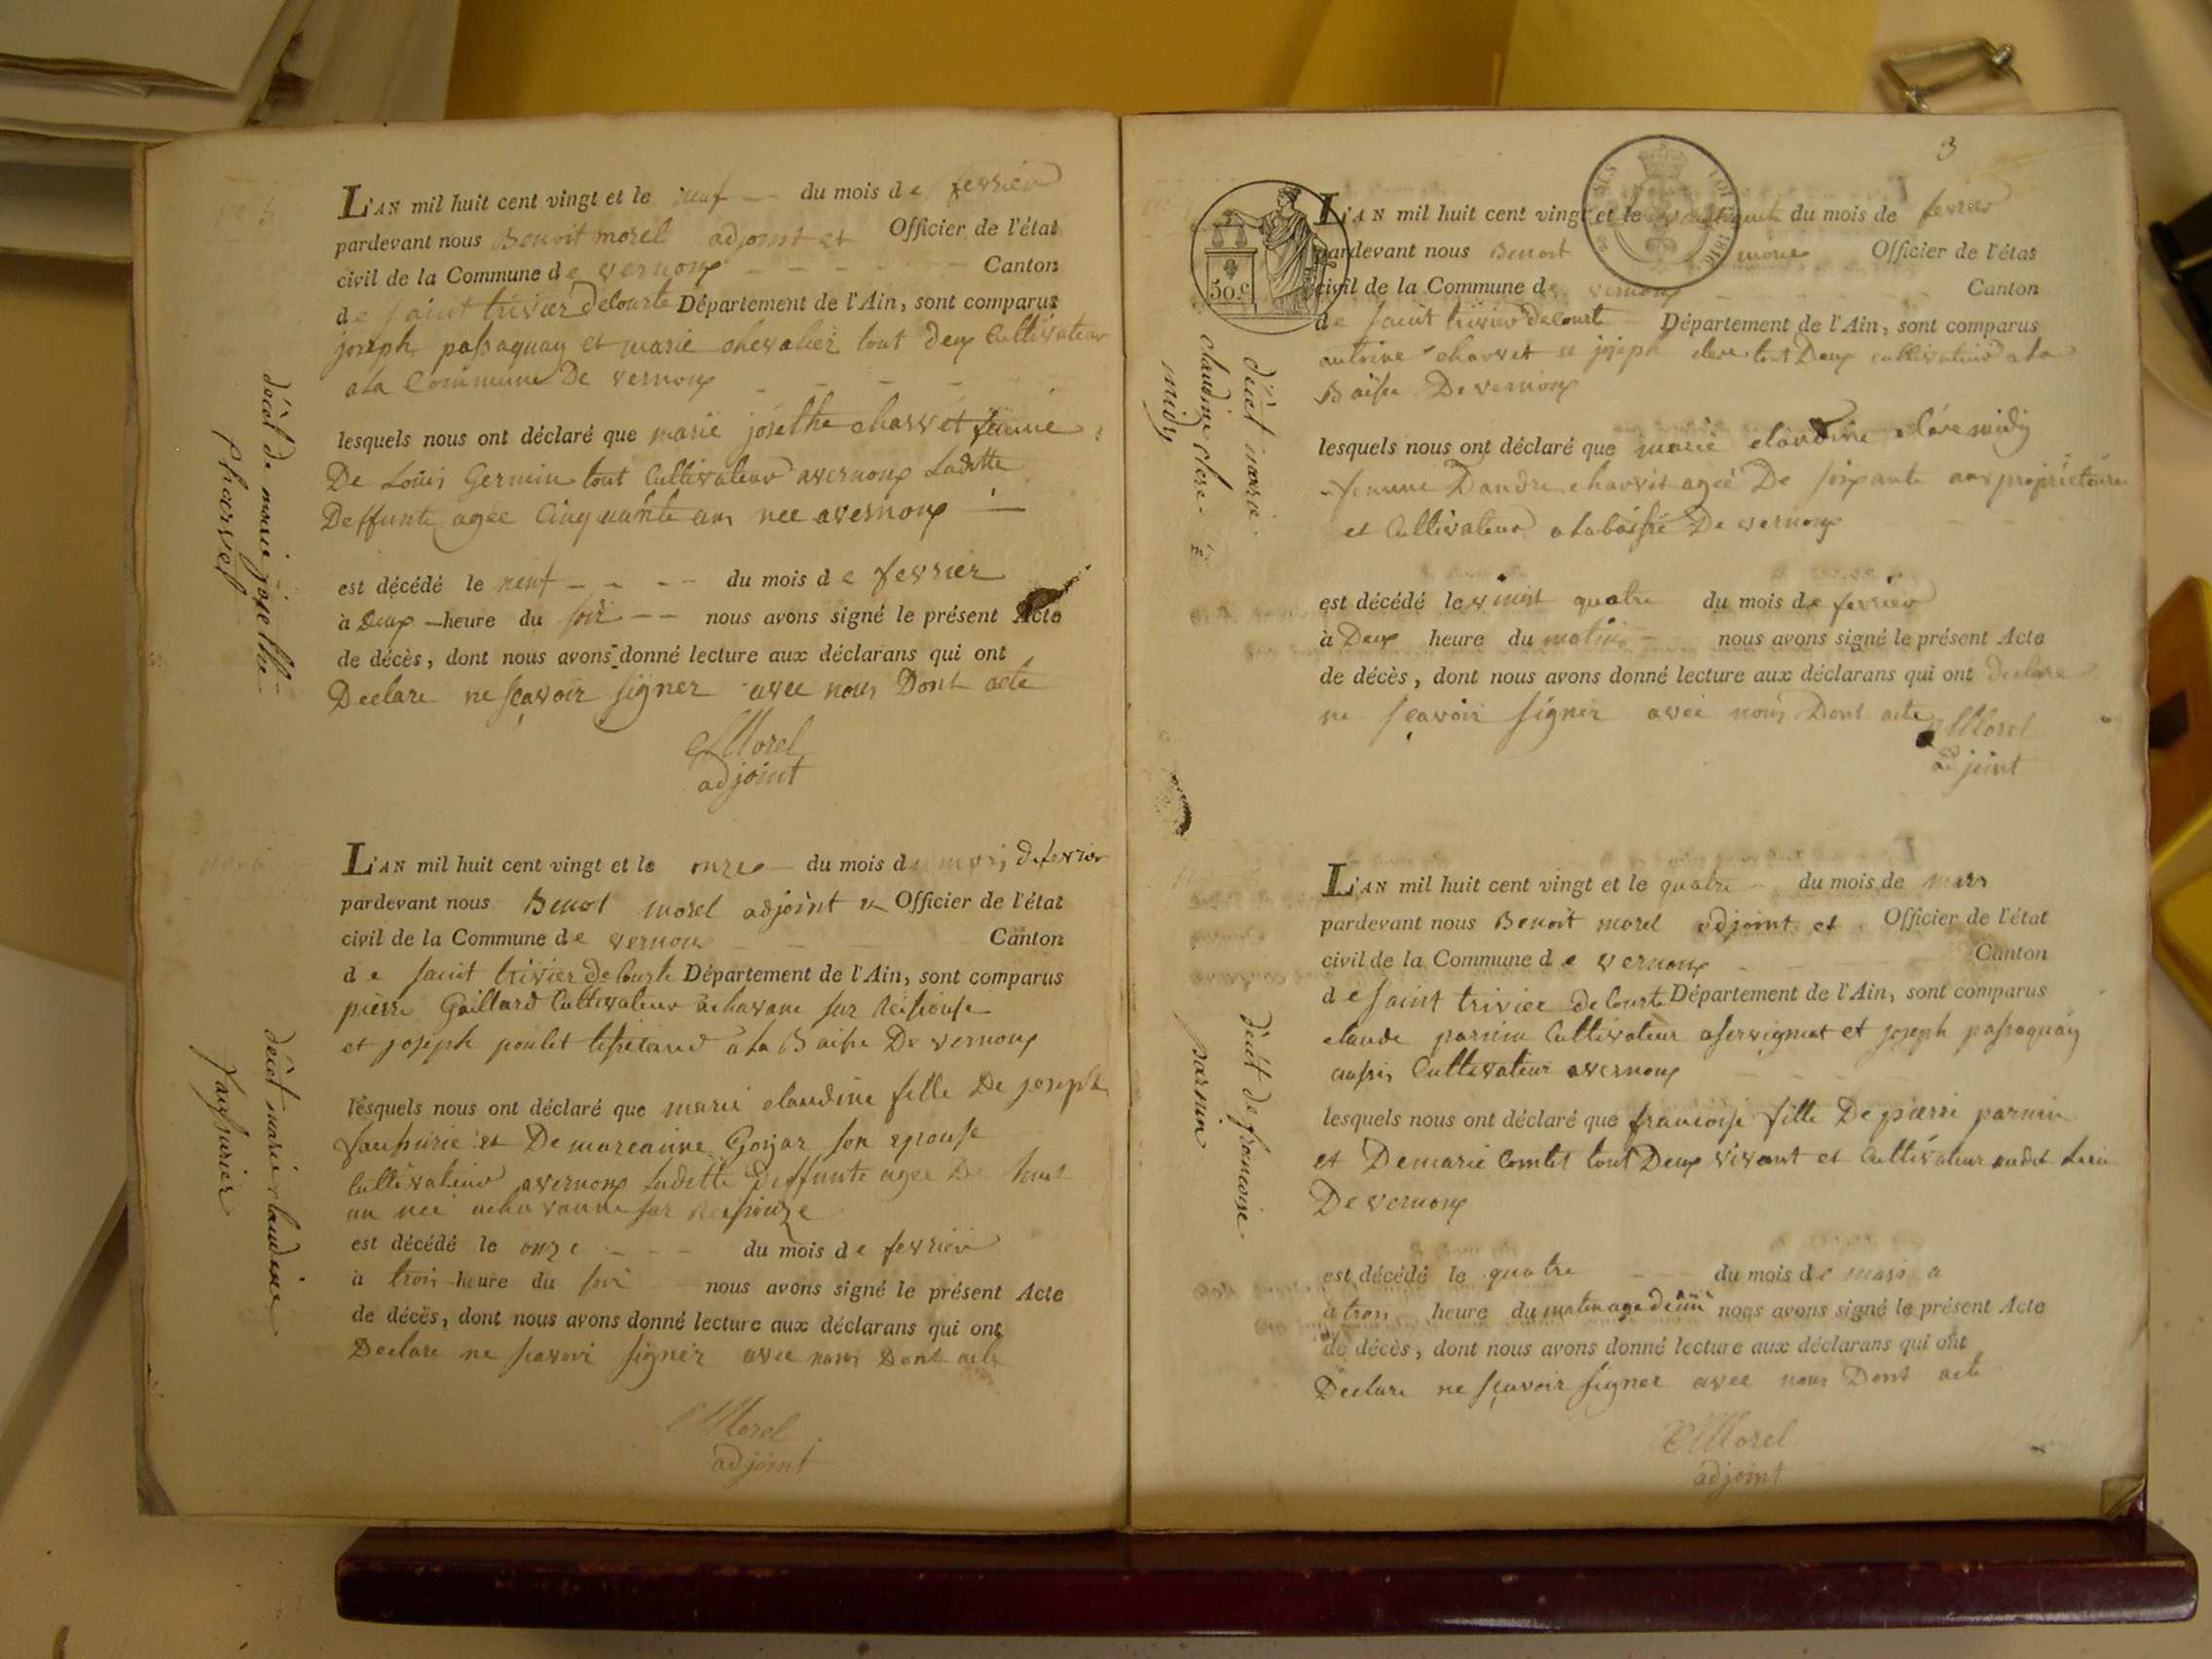 no 5
L'AN mil huit cent vingt et le neuf du mois de fevrier
pardevant nous Benoit morel adjoint et Officier de l'état
civil de la Commune de vernoux Canton
de saint trivier de Courte Département de l'Ain, sont comparus
joseph passaquay et marie chevalier tout deux Cultivateur
a la Commune De vernoux
lesquels nous ont déclaré que marie josethe charvet femme
De Louis Germin tout Cultivateur a vernoux Laditte
Deffunte agée Cinquante ans nee a vernoux
est décédé le neuf du mois de fevrier
à Deux heure du soir nous avons signé le présent Acte
de décès, dont nous avons donné lecture aux déclarans qui ont
Declare ne sçavoir signer avec nous Dont acte
Morel
adjoint
décét de marie josethe
charvet
no 6
L'AN mil huit cent vingt et le onze du mois du mois de fevrier
pardevant nous Benoit morel adjoint et Officier de l'état
civil de la Commune de vernoux Canton
de saint trivier de Courte Département de l'Ain, sont comparus
pierre Gaillard Cultivateur a chavane sur
et joseph poulet a la Baisse De vernoux
lesquels nous ont déclaré que marie claudine fille De joseph
et De mareanne son epouse
Cultivateur a vernoux Laditte Deffunte agee De huit
an nee a chavanne sur
est décédé le onze du mois de fevrier
à trois heure du soir nous avons signé le présent Acte
de décès, dont nous avons donné lecture aux déclarans qui ont
Declare ne scavoir signer avec nous Dont acte
Morel
adjoint
décét marie claudine
3
50.c
L'AN mil huit cent vingt et le du mois de fevrier
pardevant nous Benoit Officier de l'état
civil de la Commune de vernoux Canton
de saint trivier de Courte Département de l'Ain, sont comparus
antoine charvet et joseph clere tout Deux cultivateur a la
Baisse De vernoux
lesquels nous ont déclaré que marie claudine clere midy
femme D'andre charvet agée De soixante ans propriétaire
et Cultivateur a la baisse De vernoux
est décédé le vingt quatre du mois de fevrier
à Deux heure du matin nous avons signé le présent Acte
de décès, dont nous avons donné lecture aux déclarans qui ont declare
ne sçavoir signer avec nous Dont acte Morel
adjoint
décét marie
claudine clere
midy
L'AN mil huit cent vingt et le quatre du mois de mars
pardevant nous Benoit morel adjoint et Officier de l'état
civil de la Commune de vernoux Canton
de saint trivier de Courte Département de l'Ain, sont comparus
claude parnin Cultivateur a servignat et joseph passaquay
aussi Cultivateur a vernoux
lesquels nous ont déclaré que francoise fille De pierre parnin
et De marie Comtet tout Deux vivant et Cultivateur audit Lieu
De vernoux
est décédé le quatre du mois de mars a
à trois heure du matin nous avons signé le présent Acte
de décès, dont nous avons donné lecture aux déclarans qui ont
Declare ne sçavoir signer avec nous Dont acte
Morel
adjoint
décét de francoise
parnin